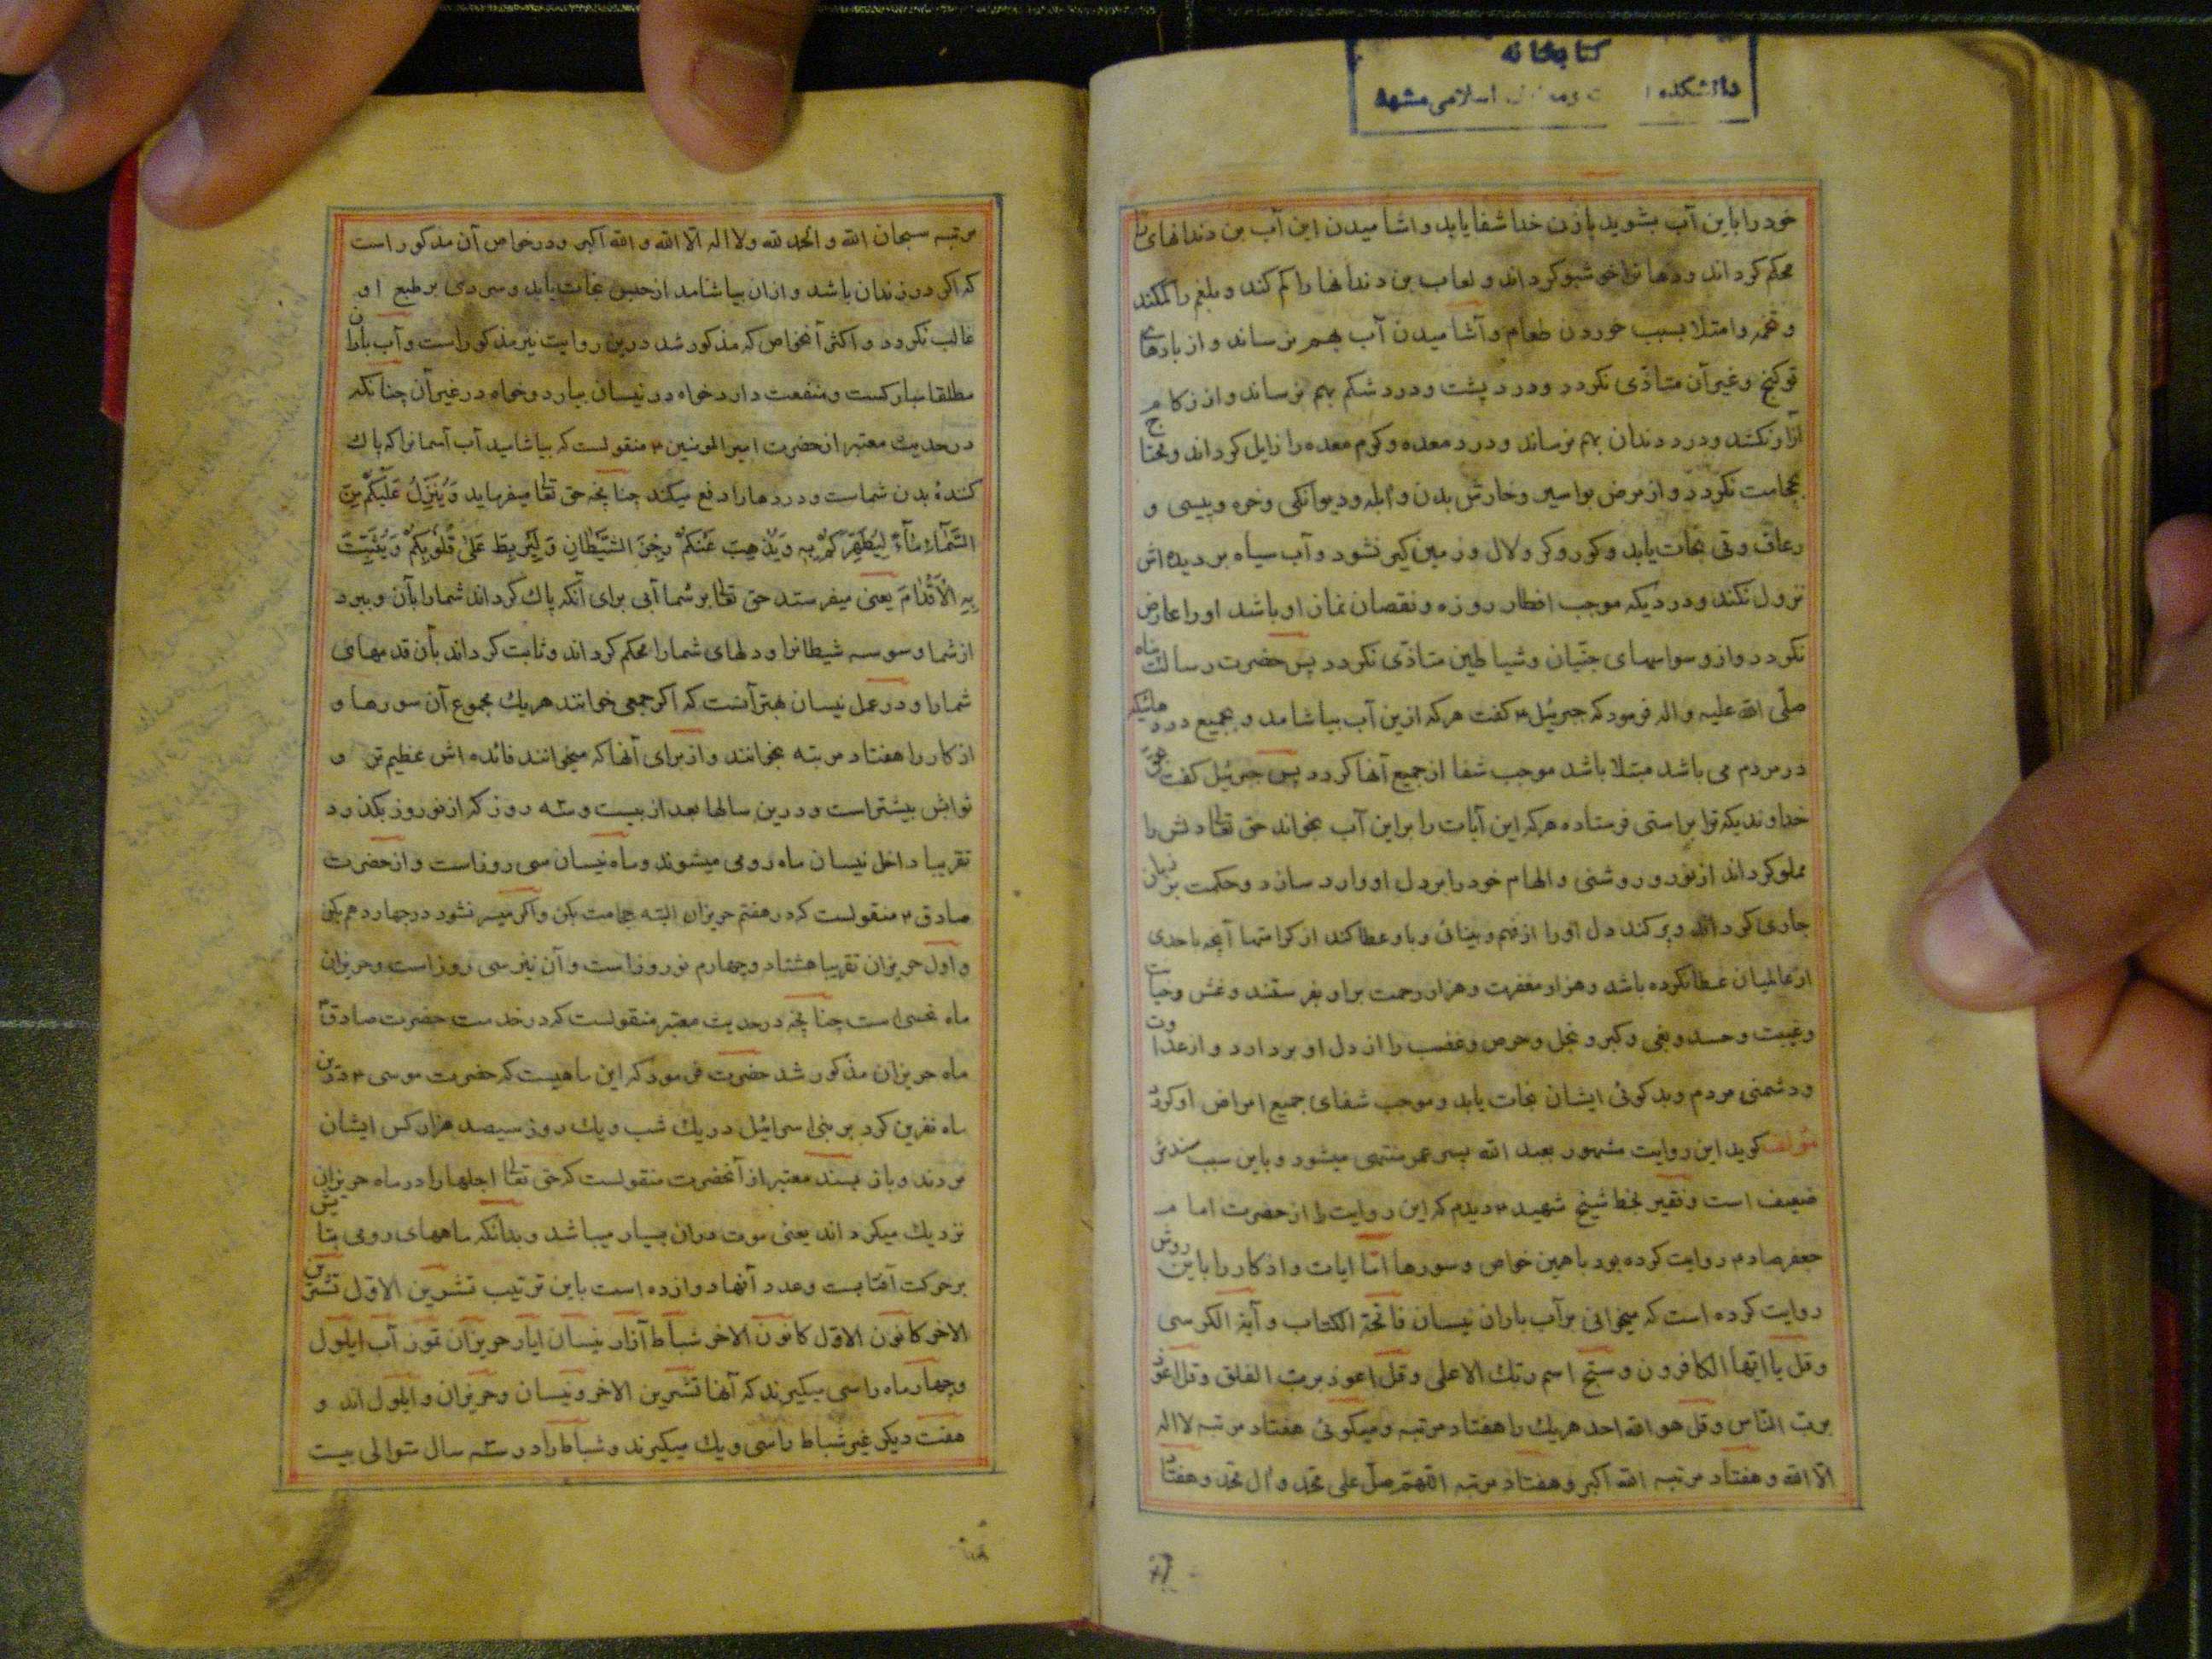 کتابخانه
دانشکده اسلامی مشهد
خود را باین آب بشوید باذن خدا شفا یابد و اشامیدن این آب بن دندانهای
محکم کرداند و دهانرا خوشبو کرداند و لعاب بن دندانها را کم کند و بلغم را کم کند
و تخمه و امتلا بسبب خوردن طعام و آشامیدن آب بهم نرساند و از بادهای
قولنج و غیر آن متاذّی نکردد و درد پشت و درد شکم بهم نرساند و از زکام
آزار نکشد و درد دندان بهم نرساند و درد معده و کرم معده را زایل کرداند و محتاج
بحجامت نکردد و از مرض بواسیر و خارش بدن و آبله و دیوانکی و خوره و پیسی و
رعاف و قی نجات یابد و کور و کر و لال و زمین کیر نشود و آب سیاه بر دیده اش
نزول نکند و دردیکه موجب افطار روزه و نقصان نماز او باشد او را عارض
نکردد و از وسواسهای جنّیان و شیاطین متاذّی نکردد پس حضرت رسالت پناه
صلّی الله علیه و اله فرمود که جبرئیل ع کفت هر که ازین آب بیاشامد و بجمیع دردهائیکه
در مردم می باشد مبتلا باشد موجب شفا از جمیع آنها کردد پس جبرئیل کفت بحق
خداوندیکه ترا براستی فرستاده هر که این آیات را براین آب بخواند حق تعا دلش را
مملو کرداند از نور و روشنی و الهام خود را بر دل او وارد سازد و حکمت بر زبان
جاری کرداند و پر کند دل او را از فهم و بینائی و باو عطا کند از کرامتها آنچه باحدی
از عالمیان عطا نکرده باشد و هزار مغفرت و هزار رحمت بر او بفرستند و غش و خیانت
و غیبت و حسد و بغی و کبر و بخل و حرص و غضب را از دل او بردارد و از عداوت
و دشمنی مردم و بدکوئی ایشان نجات یابد و موجب شفای جمیع امراض او کردد
مؤلف کوید این روایت مشهور بعبد الله پسر عمر منتهی میشود و باین سبب سندش
ضعیف است و فقیر بخط شیخ شهید ره دیدم که این روایت را از حضرت امام
جعفر صادم روایت کرده بود با همین خواص و سورها امّا ایات و اذکار را باین روش
روایت کرده است که میخوانی بر آب باران نیسان فاتحة الکتاب و آیة الکرسی
و قل یا ایّها الکافرون و سبّح اسم ربّک الاعلی و قل اعوذ بربّ الفلق و قل اعوذ
بربّ النّاس و قل هو الله احد هریک را هفتاد مرتبه و میکوئی هفتاد مرتبه لا اله
الّا الله و هفتاد مرتبه الله اکبر و هفتاد مرتبه اللّهمّ صلّ علی محمّد و آل محمّد و هفتاد
مرتبه سبحان الله و الحمد لله و لا اله الّا الله و الله اکبر و در خواص آن مذکور است
که اکر در زندان باشد و ازان بیاشامد از حبس نجات یابد و سردی بر طبع او
غالب نکردد و اکثر آنخواص که مذکور شد درین روایت نیز مذکور است و آب باران
مطلقا مبارکست و منفعت دارد خواه در نیسان ببارد و خواه در غیر آن چنانکه
در حدیث معتبر از حضرت امیر المومنین ع منقولست که بیاشامید آب آسمانرا که پاک
کنندۀ بدن شماست و دردها را دفع میکند چنانچه حق تعا میفرماید وَ یُنَزِّلُ عَلَیْکُمْ مِنَ
السَّمَاءِ مَاءً لِیُطَهِّرَکُمْ بِهِ وَ یُذْهِبَ عَنْکُمْ رِجْزَ الشَّیْطَانِ وَ لِیَرْبِطَ عَلَی قُلُوبِکُمْ وَ یُثَبِّتَ
بِهِ الْاَقْدَامَ یعنی میفرستد حق تعا بر شما آبی برای آنکه پاک کرداند شما را بآن و ببرد
از شما وسوسه شیطانرا و دلهای شما را محکم کرداند و ثابت کرداند بآن قدمهای
شما را و در عمل نیسان بهتر آنست که اکر جمعی خوانند هریک مجموع آن سورها و
اذکار را هفتاد مرتبه بخوانند و از برای آنها که میخوانند فائده اش عظیم تر و
ثوابش بیشتر است و درین سالها بعد از بیست و سه روز که از نوروز بکذرد
تقریبا داخل نیسان ماه رومی میشوند و ماه نیسان سی روز است و از حضرت
صادق ع منقولست که در هفتم حزیران البته حجامت بکن و اکر میسر نشود در چهاردهم بکن
و اول حزیران تقریبا هشتاد و چهارم نوروز است و آن نیز سی روز است و حزیران
ماه نحسی است چنانچه در حدیث معتبر منقولست که در خدمت حضرت صادق ع
ماه حزیران مذکور شد حضرت فرمود که این ماهیست که حضرت موسی ع درین
ماه نفرین کرد بر بنی اسرائیل در یک شب و یک روز سیصد هزار کس ایشان
مردند و باز بسند معتبر از آنحضرت منقولست که حق تعا اجلها را در ماه حزیران
نزدیک میکرداند یعنی موت دران بسیار میباشد و بدانکه ماههای رومی بنایش
بر حرکت آفتابست و عدد آنها دوازده است باین ترتیب تشرین الاوّل تشرین
الاخر کانون الاوّل کانون الاخر شباط آزار نیسان ایار حزیران تموز آب ایلول
و چهار ماه را سی میکیرند که آنها تشرین الاخر و نیسان و حزیران و ایلول اند و
هفت دیکر غیر شباط را سی و یک میکیرند و شباط را در سه سال متوالی بیست